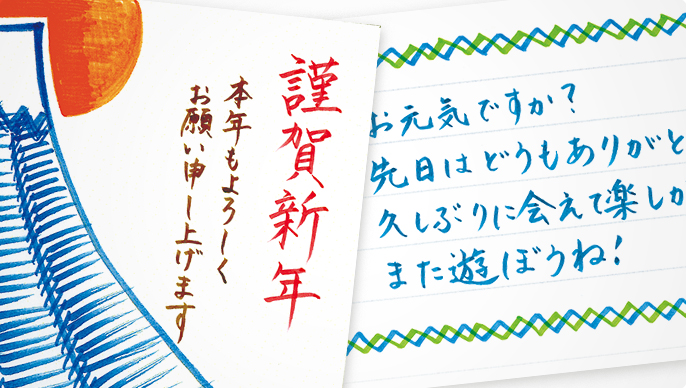 謹賀新年
本年もよろしく
お願い申し上げます
お元気ですか?
先日はどうもありがと
久しぶりに会えて楽しか
また遊ぼうね!